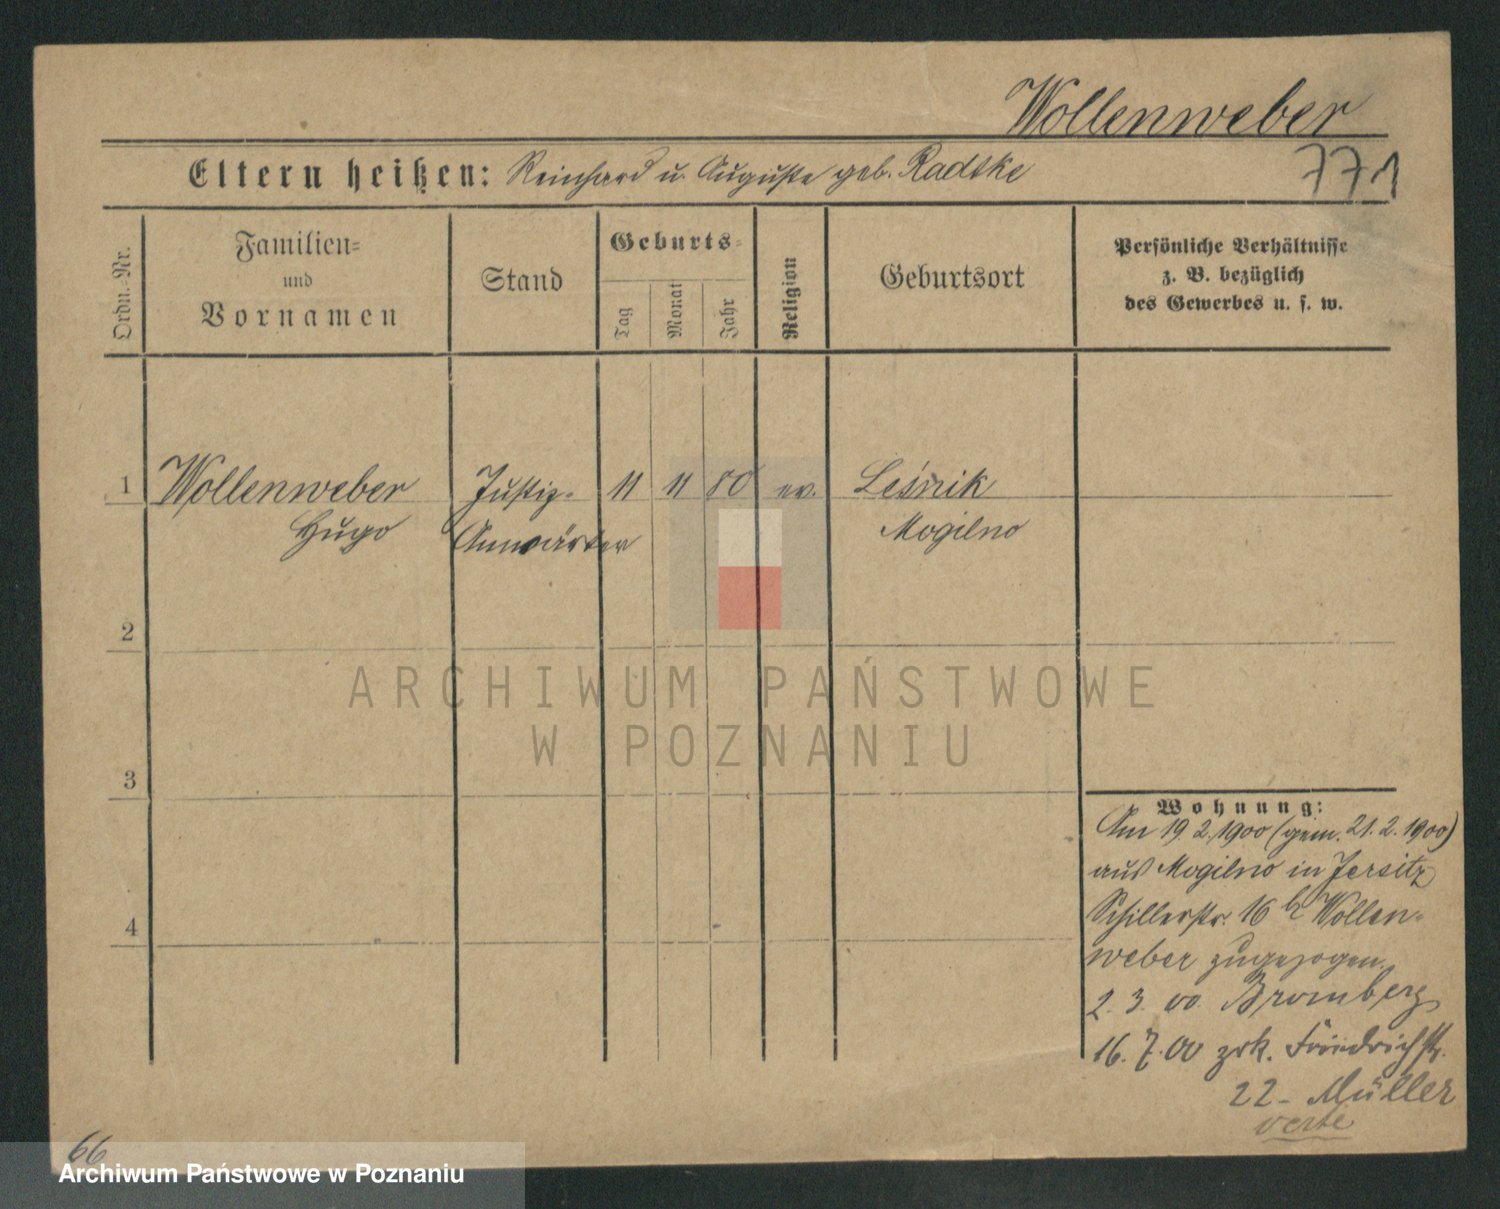 Wollenweber
Eltern heißen: Reinhard u. Auguste geb. Radtke
771
Ordn.-Nr.
Familien- und Vornamen
Stand
Geburts-
Tag
Monat
Jahr
Religion
Geburtsort
Persönliche Verhältnisse
z. B. bezüglich
des Gewerbes u. s. w.
1 Wollenweber Justiz- 11 11 80 ev. Leśnik
Hugo Anwärter Mogilno
2
3
4
Wohnung:
Am 19.2.1900 (gem. 21.2.1900)
aus Mogilno in Jersitz
Schillerstr. 16 b Wollen-
weber zugezogen.
2. 3. 00. Bromberg
16. 7. 00 zrk. Friedrichstr.
22 - Müller
verte
66
ARCHIWUM PAŃSTWOWE
W POZNANIU
Archiwum Państwowe w Poznaniu